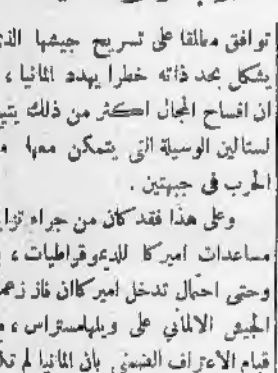 توافق مطلقا على تسريح جيشها الذي
يشكل بحد ذاته خطرا يهدد المانيا ،
ان افساح المجال اكثر من ذلك يتيح
لستالين الوسيلة التي يتمكن معها
الحرب في جبهتين .
وعلى هذا فقد كان من جراء تزا
مساعدات اميركا للديموقراطيات ،
وحتى احتمال تدخل اميركا ان فاز زعم
الجيش الالماني على ويلهلمستراس ،
قيام الاعتراف الضمني بان المانيا لم تك